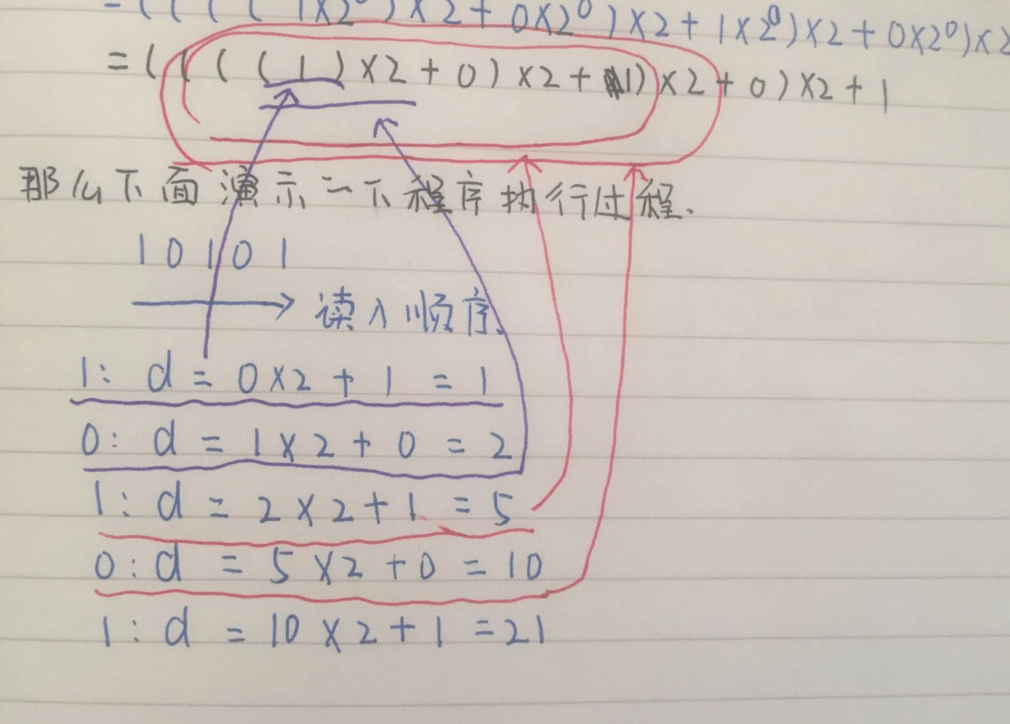 =((((1×2⁰)×2+0×2⁰)×2+1×2⁰)×2+0×2⁰)×2
=(((((1)×2+0)×2+1)×2+0)×2+1
那么下面演示一下程序执行过程.
10101
读入顺序.
1: d=0×2+1=1
0: d=1×2+0=2
1: d=2×2+1=5
0: d=5×2+0=10
1: d=10×2+1=21